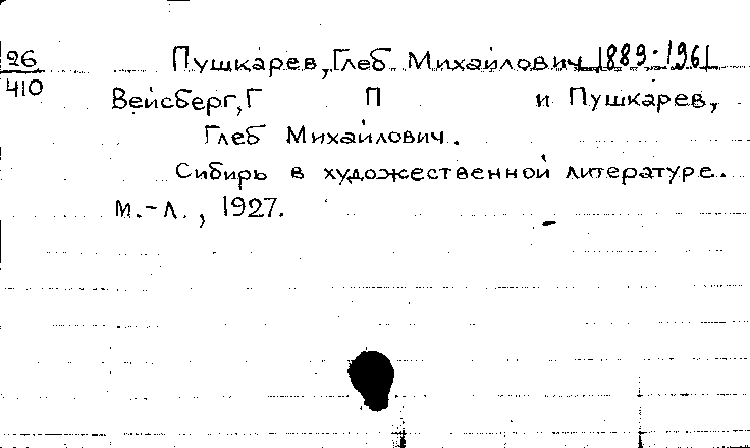 26
410
Пушкарев, Глеб Михайлович 1889-1961
Вейсберг, Г П и Пушкарев,
Глеб Михайлович.
Сибирь в художественной литературе.
М.-Л., 1927.